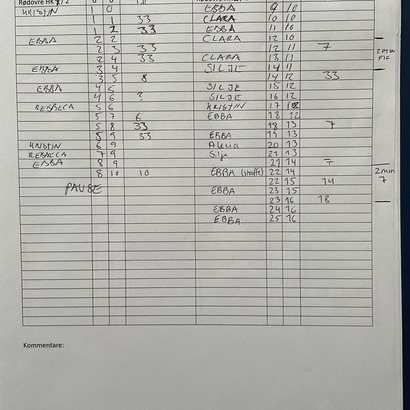 Rødovre HK 2
KRISTIN 1 0 EBBA 9 10
1 1 33 CLARA 10 10
1 2 33 EBBA 11 10
EBBA 2 2 CLARA 12 10
2 3 33 12 11 7
2 4 33 CLARA 13 11 2 MIN
EBBA 3 4 SILJE 14 11
3 5 8 14 12 33
EBBA 4 5 SILJE 15 12
4 6 SILJE 16 12
REBECCA 5 6 KRISTIN 17 12
5 7 6 EBBA 18 12
5 8 33 18 13 7
5 9 33 EBBA 19 13
KRISTIN 6 9 20 13
REBECCA 7 9 Silje 21 13
EBBA 8 9 21 14 7
8 10 10 EBBA (straffe) 22 14 2 min
PAUSE 22 15 14 7
EBBA 23 15
23 16 18
EBBA 24 16
EBBA 25 16
Kommentare: